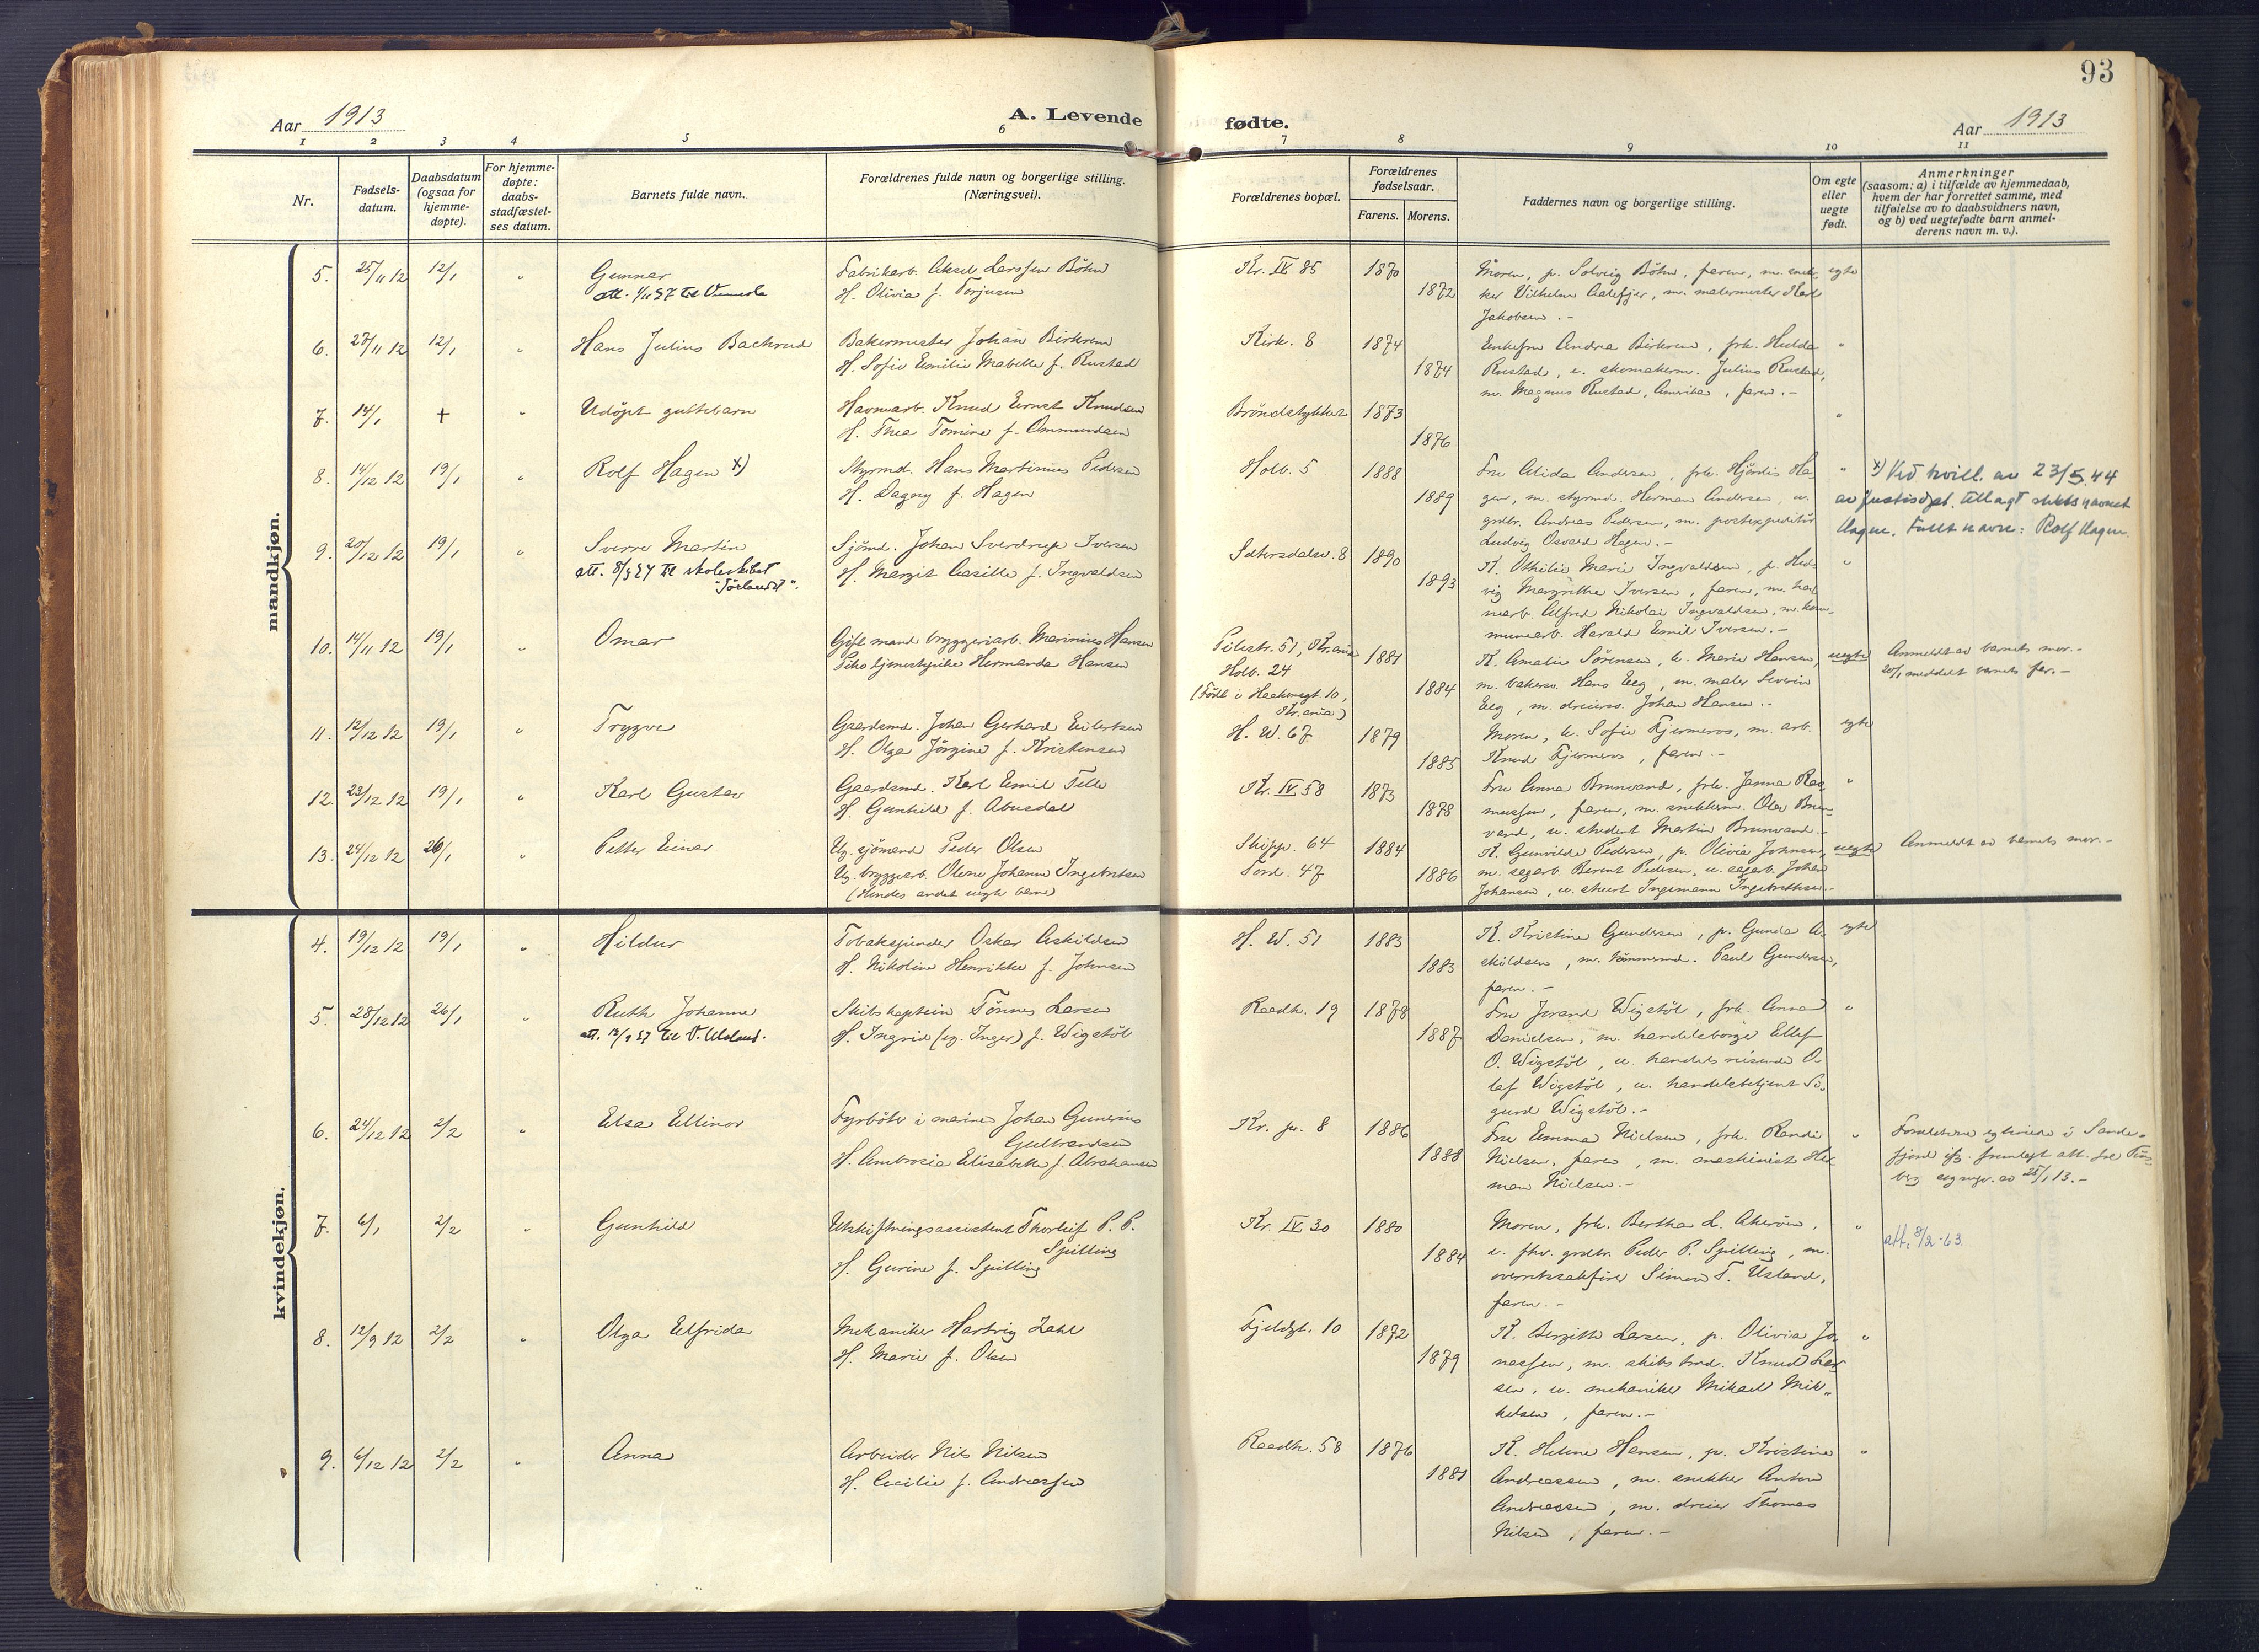 93
Aar 1913
A. Levende
fødte.
Aar 1913
1 2 3 4 5 6 7 8 9 10 11
Nr.
Fødsels-
datum.
Daabsdatum
(ogsaa for
hjemme-
døpte).
For hjemme-
døpte:
daabs-
stadfæstel-
ses datum.
Barnets fulde navn.
Forældrenes fulde navn og borgerlige stilling.
(Næringsvei).
Forældrenes bopæl.
Forældrenes
fødselsaar.
Farens. Morens.
Faddernes navn og borgerlige stilling.
Om egte
eller
uegte
født.
Anmerkninger
(saasom: a) i tilfælde av hjemmedaab,
hvem der har forrettet samme, med
tilføielse av to daabsvidners navn,
og b) ved uegtefødte barn anmel-
derens navn m. v.).
mandkjøn.
5. 25/11 12 12/1 " Gunnar
att. 1/11 57 til Vennesla
Fabrikarb. Aksel Larssen Böhn
H. Olivia f. Torjusen
Kr. IV 85 1870 1872
Moren, p. Solveig Böhn, faren, m. snek-
ker Vilhelm Aalefjer, m. malermester Karl
Jakobsen. -
egte
6. 27/11 12 12/1 " Hans Julius Backrud
Bakermester Johan Birkrem
H. Sofie Emilie Mabelle f. Rustad
Kirk. 8 1874 1874
Enkefru Andrea Birkrem, frk. Hulda
Rustad, u. skomakerm. Julius Rustad,
m. Magnus Rustad, Amerika, faren. -
"
7. 14/1 + " Udöpt guttebarn
Havnearb. Knud Ernst Knudsen
H. Thea Tomine f. Ommundsen
Bröndstykket 1873 1876
"
8. 14/12 12 19/1 " Rolf Hagen x)
Styrmd. Hans Martinius Pedersen
H. Dagny f. Hagen
Holb. 5 1888 1889
Fru Alida Andersen, frk. Hjördis Ha-
gen, m. styrmd. Herman Andersen, u.
grdbr. Andreas Pedersen, m. postexpeditör
Ludvig Osvald Hagen. -
"
x) Ved bevill. av 23/5. 44
av Justisdpt. tillagt slektsnavnet
Hagen. Fullt navn: Rolf Hagen.
9. 20/12 12 19/1 " Sverre Martin
att. 8/3 27 til skoleskibet
"Sörlandet".
Sjömd. Johan Sverdrup Iversen
H. Margit Casille f. Ingvaldsen
Sætersdalsv. 8 1890 1893
K. Othilie Marie Ingvaldsen, p. Hed-
vig Margrethe Iversen, faren, m. hav-
nearb. Alfred Nikolai Ingvaldsen, m. kom-
munearb. Harald Emil Iversen. -
"
10. 14/11 12 19/1 " Omar
Gift mand bryggeriarb. Marinius Hansen
Pike tjenestepike Hermanda Hansen
Pilestr. 51, Kr.ania
Holb. 24
(Född i Haakonsgt. 10,
Kr.ania)
1881 1884
K. Amalie Sörensen, k. Marie Hansen,
m. bakersv. Hans Eeg, m. maler Severin
Eeg, m. dreiersv. Johan Hansen. -
uegte
Anmeldt av barnets mor. -
20/1 meddelt barnets far. -
11. 12/12 12 19/1 " Trygve
Gaardsmd. Johan Gerhard Eilertsen
H. Olga Jörgine f. Kristensen
H. W. 67 1879 1885
Moren, k. Sofie Fjermeros, m. arb.
Knud Fjermeros, faren. -
egte
12. 23/12 12 19/1 " Karl Gustav
Gaardsmd. Karl Emil Felle
H. Gunhild f. Abusdal
Kr. IV 58 1873 1878
Fru Anna Brunvand, frk. Janna Ras-
mussen, faren, m. snekkerm. Olav Brun-
vand, u. student Martin Brunvand. -
"
13. 24/12 12 26/1 " Petter Einar
Ug. sjömand Peder Olsen
Ug. bryggearb. Olene Johanne Ingebretsen
(Hendes andet uegte barn)
Skipp. 64
Tord. 47
1884 1886
K. Gunvilde Pedersen, p. Olivia Johnsen,
m. sagarb. Berent Pedersen, u. sagarb. Johan
Johansen, u. stuert Ingemann Ingebretsen. -
uegte
Anmeldt av barnets mor. -
kvindekjøn.
4. 19/12 12 19/1 " Hildur
Tobakspinder Oskar Askildsen
H. Nikoline Henrikke f. Johnsen
H. W. 51 1883 1883
K. Kristine Gundersen, p. Gunda A-
skildsen, m. tömmermd. Paul Gundersen,
faren. -
egte
5. 28/12 12 26/1 " Ruth Johanne
att. 12/9 57 til V. Ulsland.
Skibskaptein Tönnes Larsen
H. Ingrid (eg. Inger) f. Wigstöl
Raadh. 19 1878 1887
Fru Jorand Wigstöl, frk. Anna
Danielsen, m. handelsborger Ellef
O. Wigstöl, u. handelsreisende O-
laf Wigstöl, u. handelsbetjent Si-
gurd Wigstöl. -
"
6. 24/12 12 2/2 " Elsa Ellinor
Fyrböter i marinen Johan Gunerius
Gulbrandsen
H. Ambrosia Elisabeth f. Abrahamsen
Kr. pr. 8 1886 1888
Fru Emma Nielsen, frk. Randi
Nielsen, faren, m. maskinist Her-
man Nielsen. -
"
Forældrene egteviede i Sande-
fjord ifg. fremlagt att. fra Töns-
berg sognepr. av 25/1 13. -
7. 6/1 2/2 " Gunhild
Utskiftningsassistent Thorleif P. P.
Spilling
H. Gurine f. Spilling
Kr. IV 30 1880 1884
Moren, frk. Bertha L. Akeröen,
u. fhv. grdbr. Peder P. Spilling, m.
overretssakförer Simon T. Usland,
faren. -
"
att. 8/2-63.
8. 12/9 12 2/2 " Olga Elfrida
Mekaniker Hartvig Zahl
H. Marie f. Olsen
Fjeldgt. 10 1872 1879
K. Bergithe Larsen, p. Olivia Jo-
nassen, m. skibstmd. Knud Lar-
sen, u. mekaniker Mikael Mik-
kelsen, faren. -
"
9. 6/12 12 2/2 " Anna
Arbeider Nils Nilsen
H. Cecilie f. Andreassen
Raadh. 58 1876 1881
K. Helene Hansen, p. Kristine
Andreassen, m. snekker Anton
Andreassen, m. dreier Thomas
Nilsen, faren. -
"